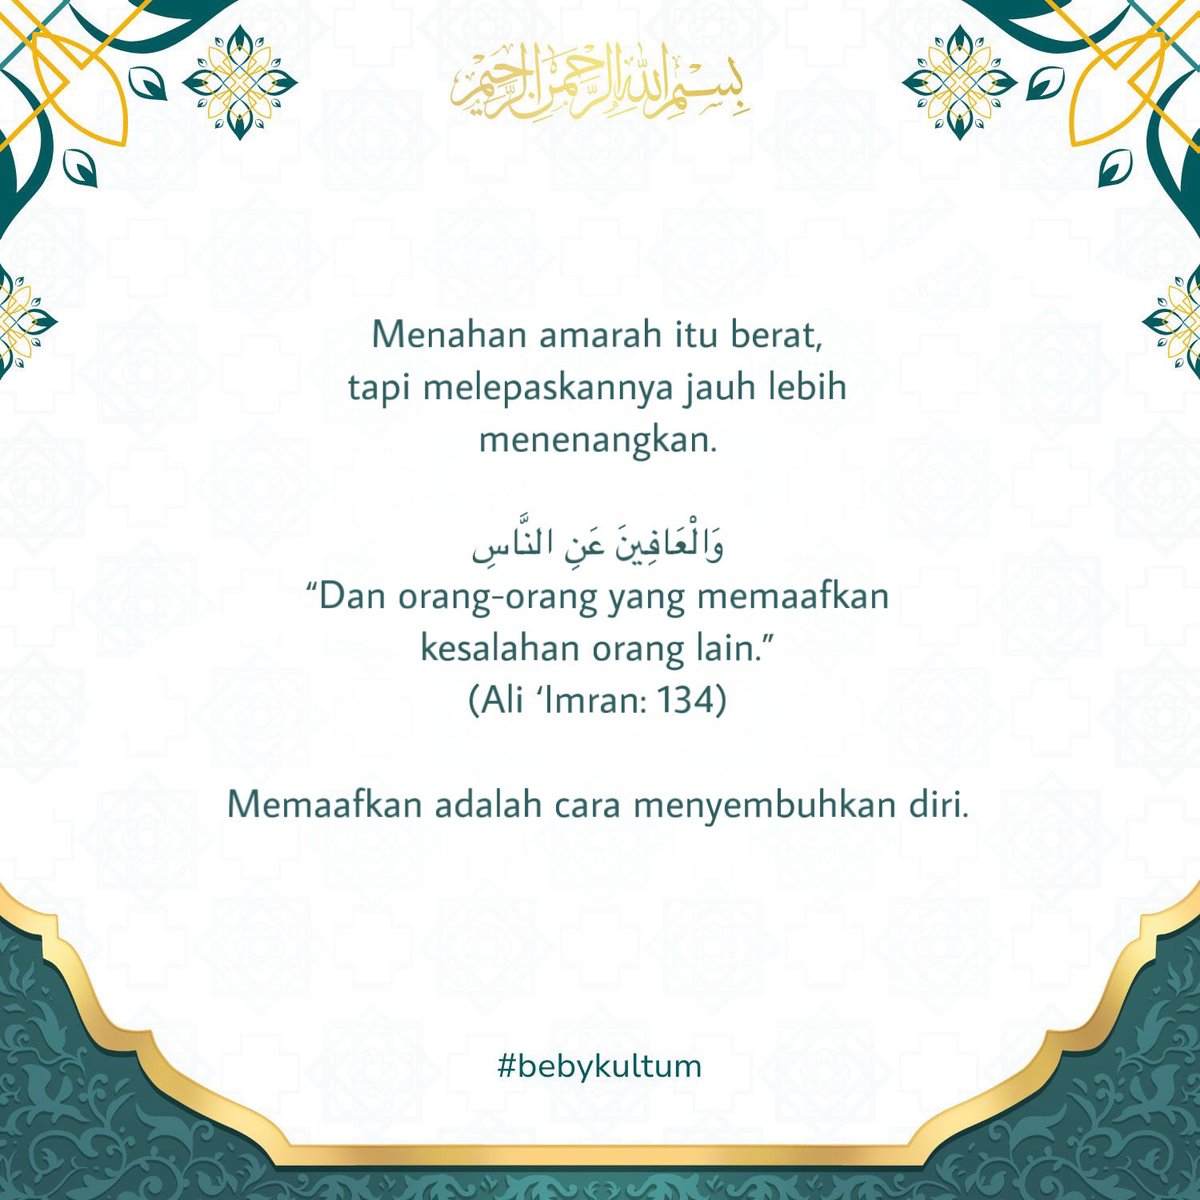 بِسْمِ اللهِ الرَّحْمٰنِ الرَّحِيْمِ
Menahan amarah itu berat,
tapi melepaskannya jauh lebih
menenangkan.
وَالْعَافِينَ عَنِ النَّاسِ
“Dan orang-orang yang memaafkan
kesalahan orang lain.”
(Ali ‘Imran: 134)
Memaafkan adalah cara menyembuhkan diri.
#bebykultum